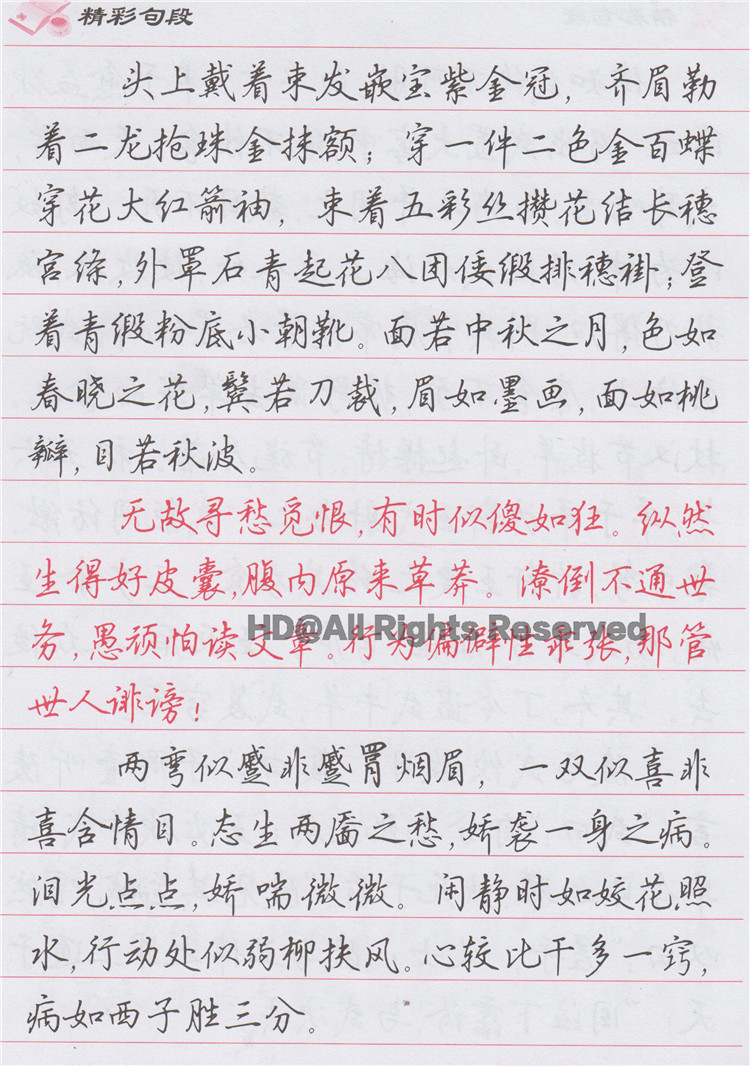 精彩句段
头上戴着束发嵌宝紫金冠，齐眉勒
着二龙抢珠金抹额；穿一件二色金百蝶
穿花大红箭袖，束着五彩丝攒花结长穗
宫绦，外罩石青起花八团倭缎排穗褂；登
着青缎粉底小朝靴。面若中秋之月，色如
春晓之花，鬓若刀裁，眉如墨画，面如桃
瓣，目若秋波。
无故寻愁觅恨，有时似傻如狂。纵然
生得好皮囊，腹内原来草莽。潦倒不通世
务，愚顽怕读文章。行为偏僻性乖张，那管
世人诽谤！
两弯似蹙非蹙罥烟眉，一双似喜非
喜含情目。态生两靥之愁，娇袭一身之病。
泪光点点，娇喘微微。闲静时如姣花照
水，行动处似弱柳扶风。心较比干多一窍，
病如西子胜三分。
HD@All Rights Reserved